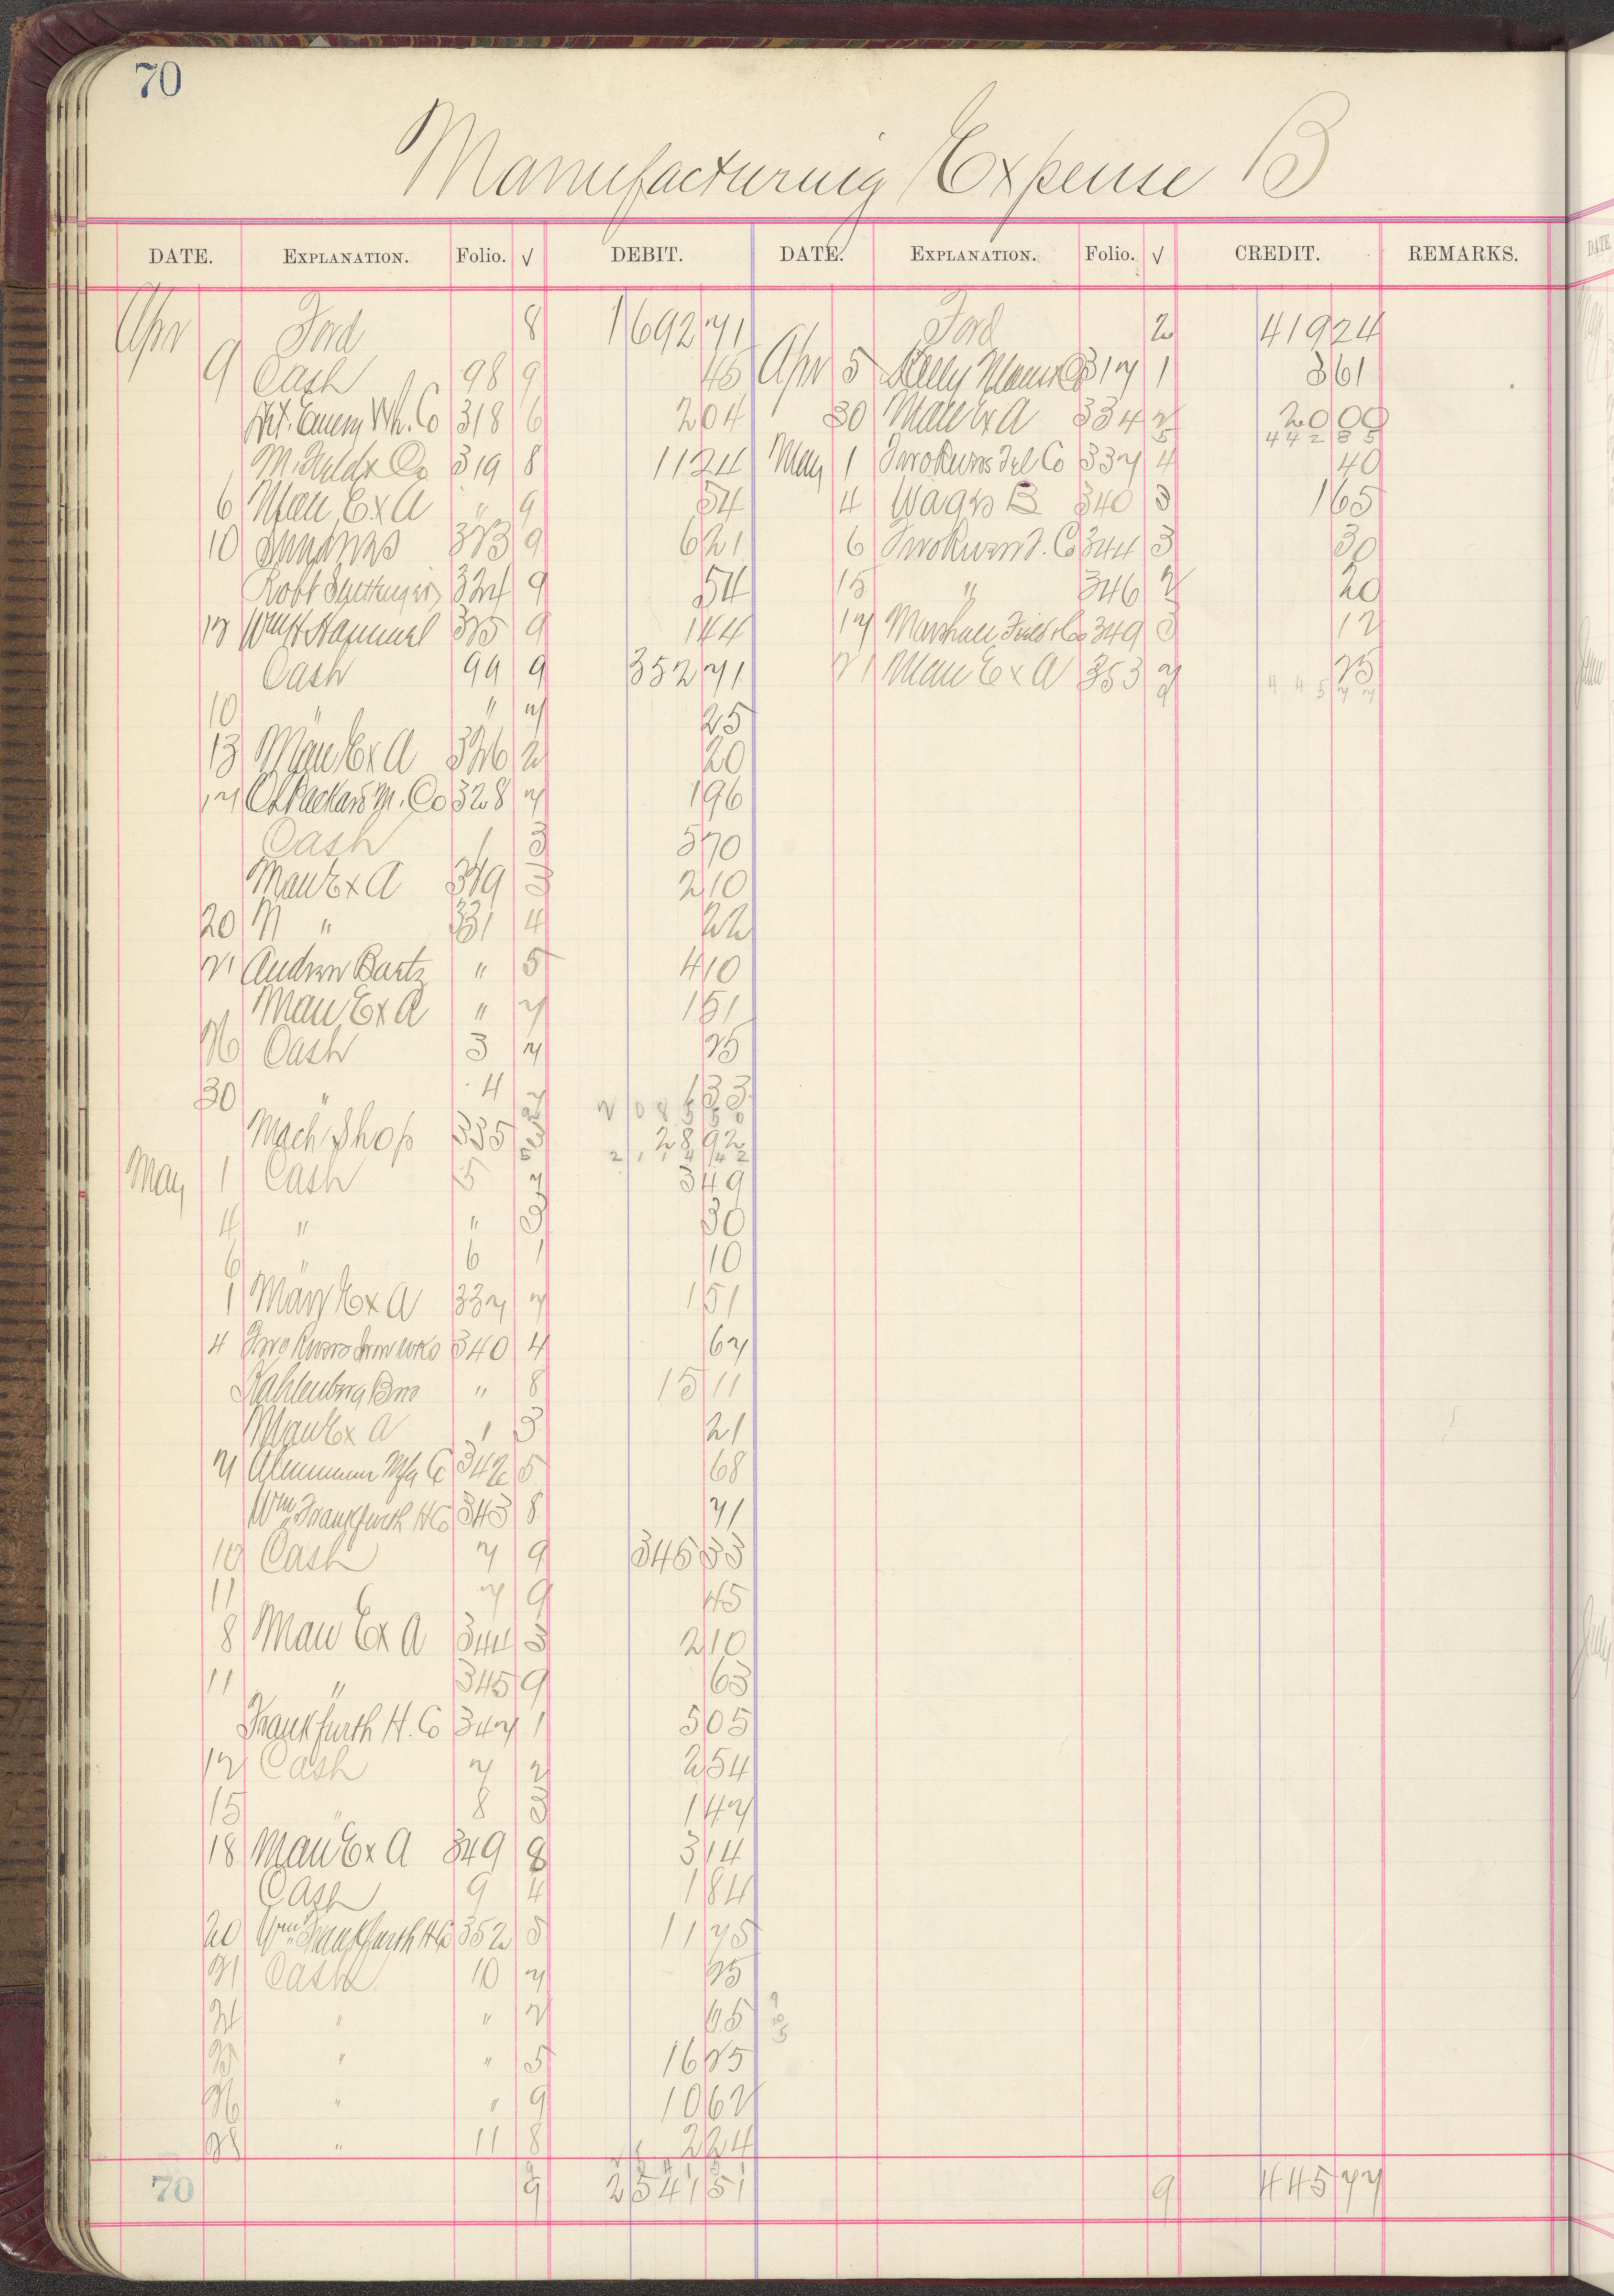 70
Manufacturing Expense B
DATE. EXPLANATION. Folio. √ DEBIT. DATE. EXPLANATION. Folio. √ CREDIT. REMARKS.
Apr Ford 8 1692 71 Ford 2 419 24
9 Cash 98 9 45 Apr 5 Kelly 317 1 3 61
Emery Wh. Co 318 6 2 04 30 Man Ex A 334 2 20 00
442 85
M. Field & Co 319 8 11 24 May 1 Two Rivers Tel Co 337 4 40
6 Man Ex A " 9 54 4 Wages B 340 3 1 65
10 Sundries 323 9 6 21 6 Two Rivers T. Co 344 3 30
Robt 324 9 54 15 " 346 2 20
12 Wm H 325 9 1 44 17 Marshall Field & Co 349 3 12
Cash 99 9 352 71 21 Man Ex A 353 7 25
445 77
10 " " 7 25
13 Man Ex A 326 2 20
17 Packard M. Co 328 7 1 96
Cash 1 3 5 70
Man Ex A 329 3 2 10
20 M " 331 4 22
21 Andrew Bartz " 5 4 10
Man Ex A " 7 1 51
26 Cash 3 7 25
30 " 4 7 1 33
2085 50
Mach Shop 335 28 92
2114 42
May 1 Cash 5 7 3 49
4 " " 3 30
6 " 6 1 10
1 Man Ex A 337 7 1 51
4 Two Rivers Iron Wks 340 4 67
Kahlenberg Bros " 8 15 11
Man Ex A 1 3 21
7 Aluminum Mfg Co 342 5 68
Wm Frankfurth H Co 343 8 71
10 Cash 7 9 345 33
11 7 9 45
8 Man Ex A 344 3 2 10
11 " 345 9 63
Frankfurth H. Co 347 1 5 05
12 Cash 7 2 2 54
15 " 8 3 1 47
18 Man Ex A 349 8 3 14
Cash 9 4 1 84
20 Wm Frankfurth H Co 352 5 11 75
21 Cash 10 7 25
24 " " 2 65
25 " " 5 16 25
26 " " 9 10 62
28 " 11 8 2 24
70 9 2541 51 9 445 77